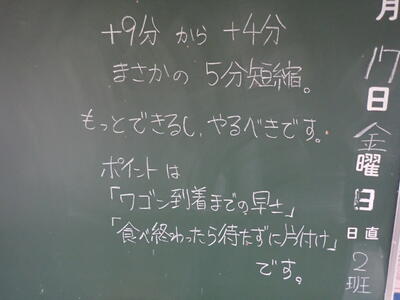 +9分 から +4分
まさかの 5分短縮。
もっとできるし、やるべきです。
ポイントは
「ワゴン到着までの早さ」
「食べ終わったら待たずに片付け」
です。
月
17
日
金
曜
日
日直
2
班